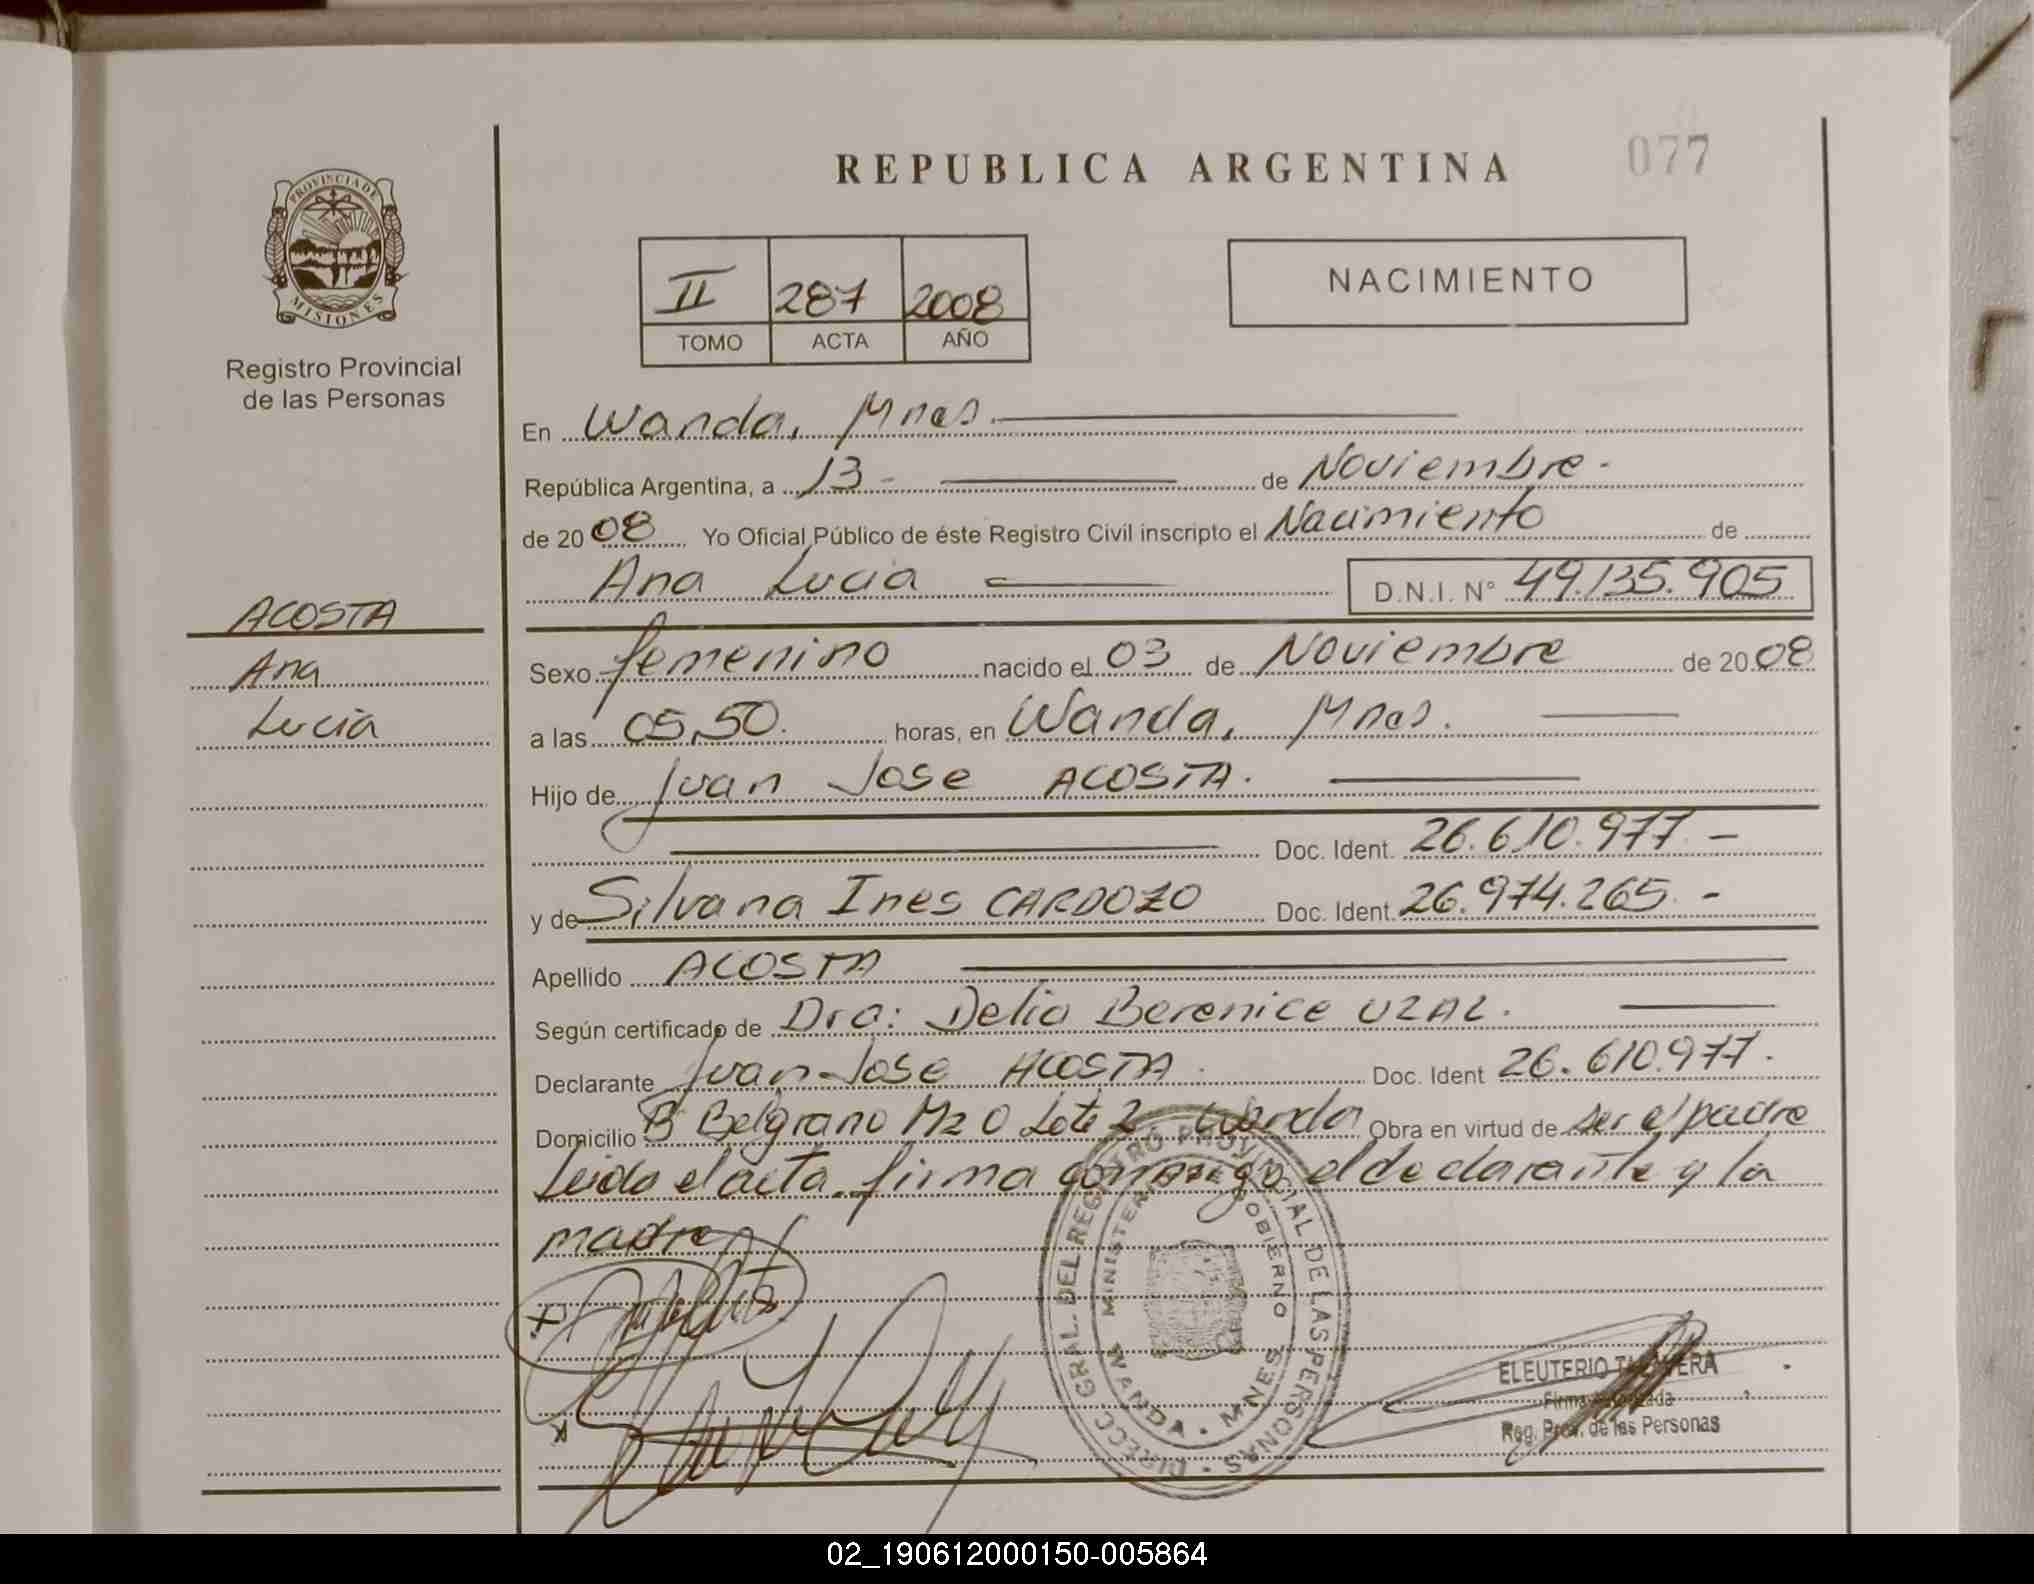 REPUBLICA ARGENTINA
077
PROVINCIA DE
MISIONES
Registro Provincial
de las Personas
II 287 2008
TOMO ACTA AÑO
NACIMIENTO
En Wanda, Mnes.
República Argentina, a 13 - de Noviembre -
de 2008 Yo Oficial Público de éste Registro Civil inscripto el Nacimiento de
Ana Lucia D.N.I. N° 49.135.905
ACOSTA
Ana
Lucia
Sexo femenino nacido el 03 de Noviembre de 2008
a las 05,50. horas, en Wanda, Mnes.
Hijo de Juan Jose ACOSTA.
Doc. Ident. 26.610.977 -
y de Silvana Ines CARDOZO Doc. Ident. 26.974.265 -
Apellido ACOSTA
Según certificado de Dra: Delia Berenice UZAL.
Declarante Juan Jose ACOSTA. Doc. Ident 26.610.977.
Domicilio B Belgrano Mz O Lote 2 Wanda Obra en virtud de ser el padre
Leida el acta, firma conmigo el declarante y la
madre
DIRECC. GRAL. DEL REGISTRO PROVINCIAL DE LAS PERSONAS
MINISTERIO GOBIERNO
WANDA - MNES
ELEUTERIO TALAVERA
Firma Autorizada
Reg. Prov. de las Personas
02_190612000150-005864